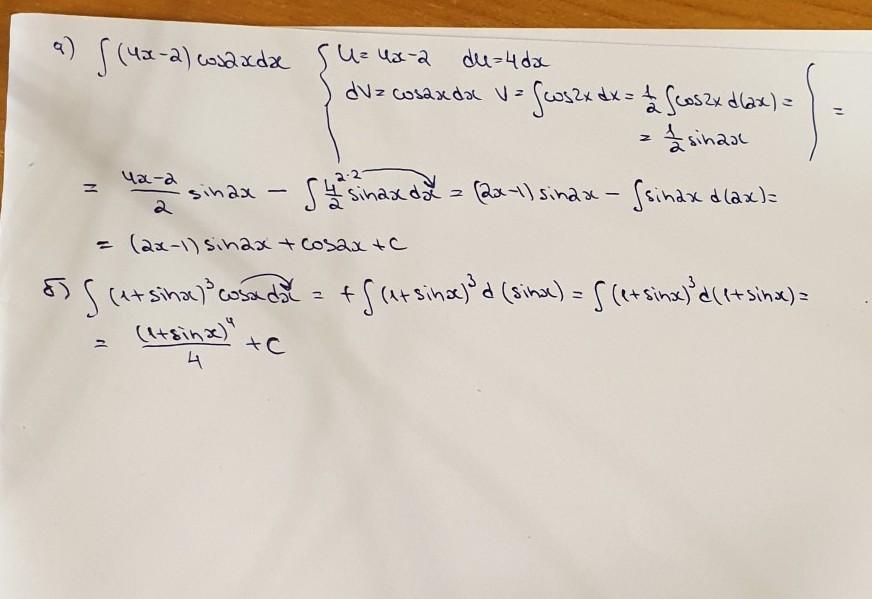 а) ∫(4x-2)cos2xdx { U=4x-2 du=4dx
dV=cos2xdx V=∫cos2xdx=1/2∫cos2xd(2x)= } =
=1/2sin2x
= (4x-2)/2 sin2x - ∫4/2 2·2 sin2xdx = (2x-1)sin2x - ∫sin2xd(2x)=
= (2x-1)sin2x+cos2x+C
б) ∫(1+sinx)³cosxdx = +∫(1+sinx)³d(sinx) = ∫(1+sinx)³d(1+sinx)=
= (1+sinx)⁴/4 +C